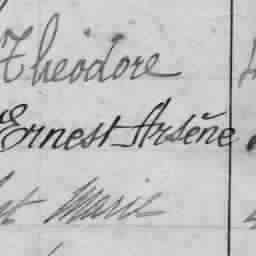 Théodore
Ernest Arsène
Marie